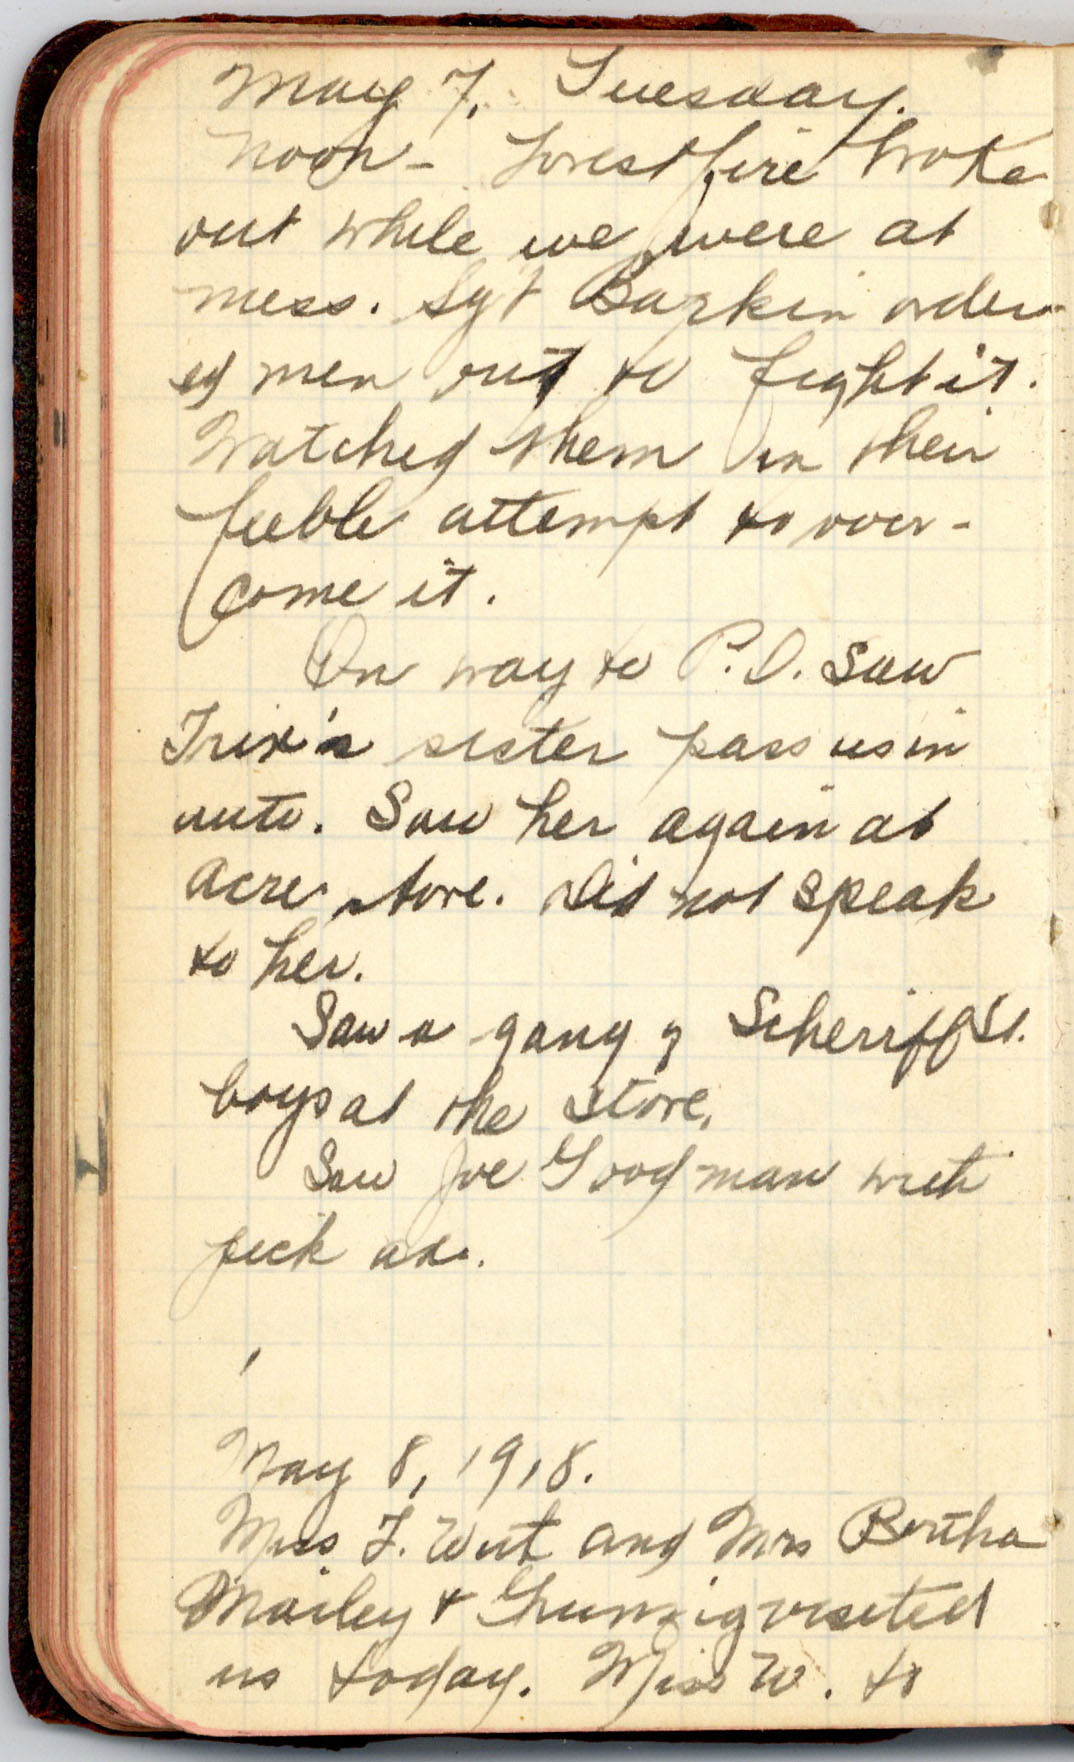 May 7, Tuesday.
Noon - Forest fire broke
out while we were at
mess. Sgt Barkin order-
ed men out to fight it.
Watched them in their
feeble attempt to over-
come it.
On way to P.O. saw
Trix's sister pass us in
auto. Saw her again at
Acre store. Did not speak
to her.
Saw a gang of Scheriff St.
boys at the store.
Saw Joe Goodman with
pick axe.
May 8, 1918.
Miss F. and Mrs Bertha
Mailey & visited
us today. Miss W. to